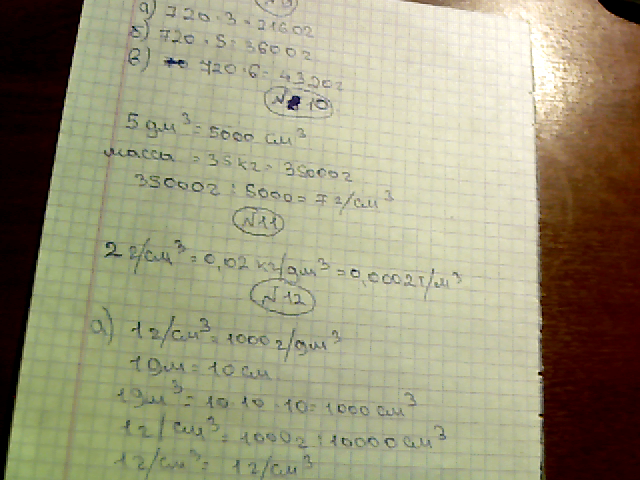 а) 720 · 3 = 2160г
б) 720 · 5 = 3600г
в) 720 · 6 = 4320г
№10
5 дм³ = 5000 см³
масса = 35кг = 35000г
35000г : 5000 = 7 г/см³
№11
2 г/см³ = 0,02 кг/дм³ = 0,0002т/м³
№12
а) 1 г/см³ = 1000 г/дм³
1дм = 10 см
1дм³ = 10 · 10 · 10 = 1000 см³
1г/см³ = 1000г : 10000 см³
1г/см³ = 1г/см³